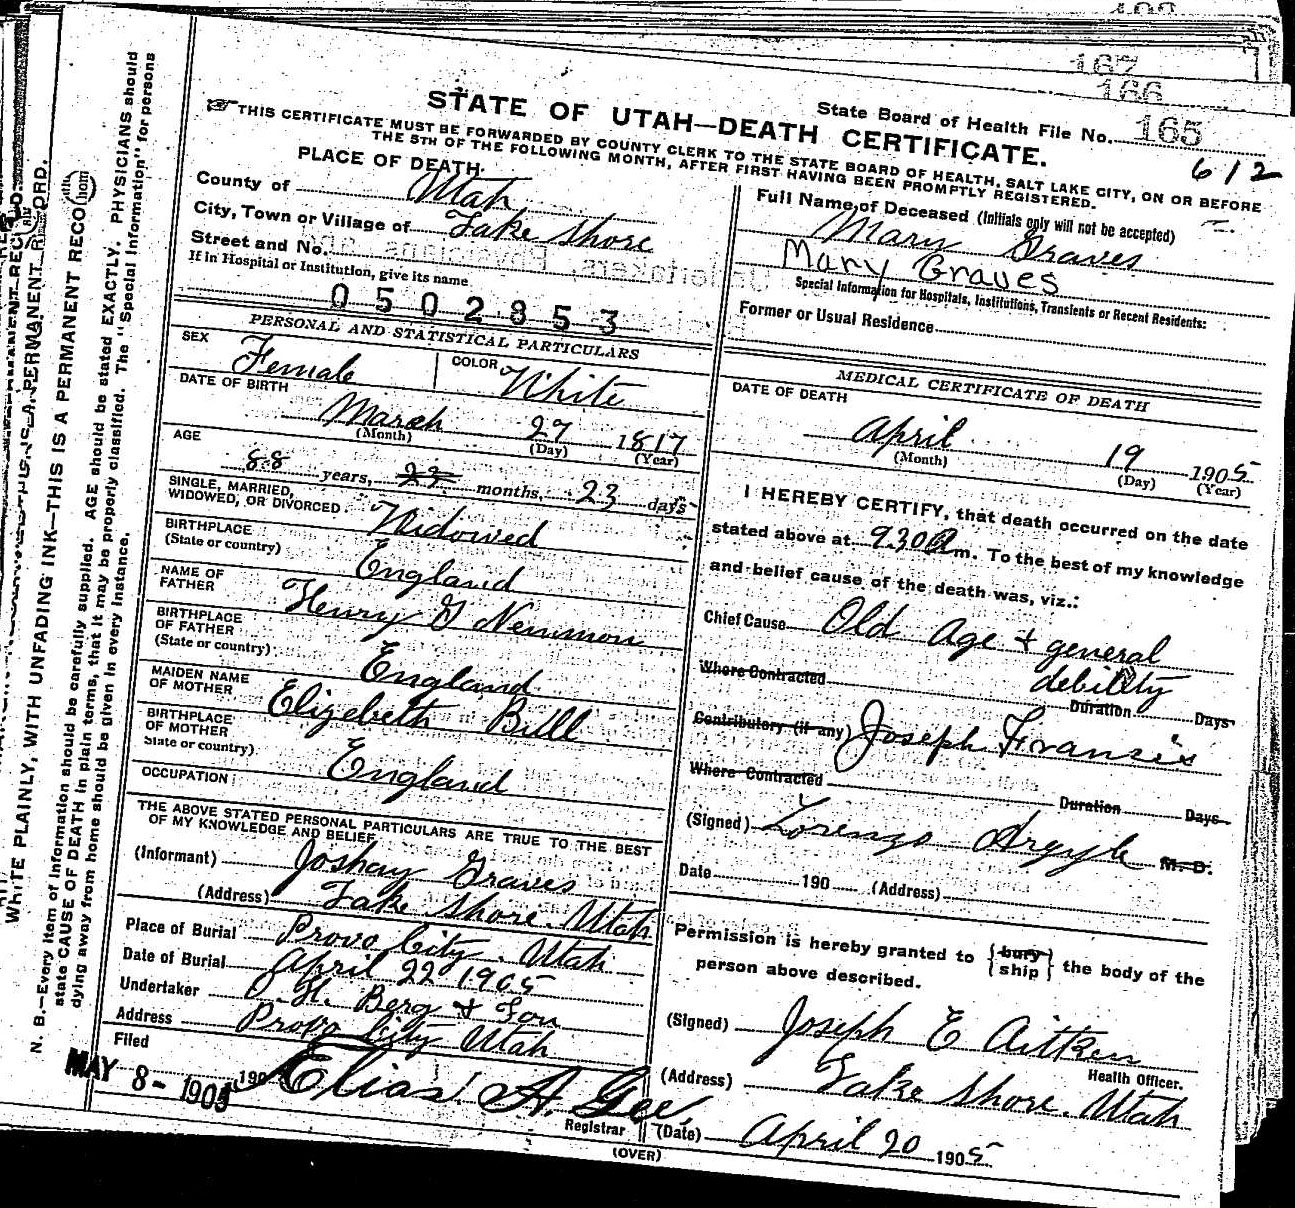 167
166
State Board of Health File No. 165
STATE OF UTAH—DEATH CERTIFICATE.
612
THIS CERTIFICATE MUST BE FORWARDED BY COUNTY CLERK TO THE STATE BOARD OF HEALTH, SALT LAKE CITY, ON OR BEFORE
THE 5TH OF THE FOLLOWING MONTH, AFTER FIRST HAVING BEEN PROMPTLY REGISTERED.
PLACE OF DEATH.
County of Utah
City, Town or Village of Lake Shore
Street and No.
If in Hospital or Institution, give its name
0502853
Full Name of Deceased (Initials only will not be accepted)
Mary Graves
Mary Graves
Special Information for Hospitals, Institutions, Transients or Recent Residents:
Former or Usual Residence
PERSONAL AND STATISTICAL PARTICULARS
SEX Female COLOR White
DATE OF BIRTH
March 27 1817
(Month) (Day) (Year)
AGE
88 years, 22 months, 23 days
SINGLE, MARRIED,
WIDOWED, OR DIVORCED Widowed
BIRTHPLACE
(State or country) England
NAME OF
FATHER Henry G Newman
BIRTHPLACE
OF FATHER
(State or country) England
MAIDEN NAME
OF MOTHER Elizebeth Bull
BIRTHPLACE
OF MOTHER
State or country) England
OCCUPATION
THE ABOVE STATED PERSONAL PARTICULARS ARE TRUE TO THE BEST
OF MY KNOWLEDGE AND BELIEF.
(Informant) Joshay Graves
(Address) Lake Shore. Utah
Place of Burial Provo City. Utah
Date of Burial April 22 1905
Undertaker O. H. Berg & Son
Address Provo City Utah
Filed
MAY 8- 1905 190 Elias A. Gee,
Registrar
MEDICAL CERTIFICATE OF DEATH
DATE OF DEATH
April 19 1905
(Month) (Day) (Year)
I HEREBY CERTIFY, that death occurred on the date
stated above at 9.30 A m. To the best of my knowledge
and belief cause of the death was, viz.:
Chief Cause Old Age & general
debility
Where Contracted Duration Days
Contributory (if any) Joseph Fransis
Where Contracted Duration Days
(Signed) Lorenzo Argyle M. D.
Date 190 (Address)
Permission is hereby granted to {bury ship} the body of the
person above described.
(Signed) Joseph E Aitken
Health Officer.
(Address) Lake Shore. Utah
(Date) April 20 1905
(OVER)
WRITE PLAINLY, WITH UNFADING INK—THIS IS A PERMANENT RECO
N. B.—Every item of information should be carefully supplied. AGE should be stated EXACTLY. PHYSICIANS should
state CAUSE OF DEATH in plain terms, that it may be properly classified. The "Special Information" for persons
dying away from home should be given in every instance.